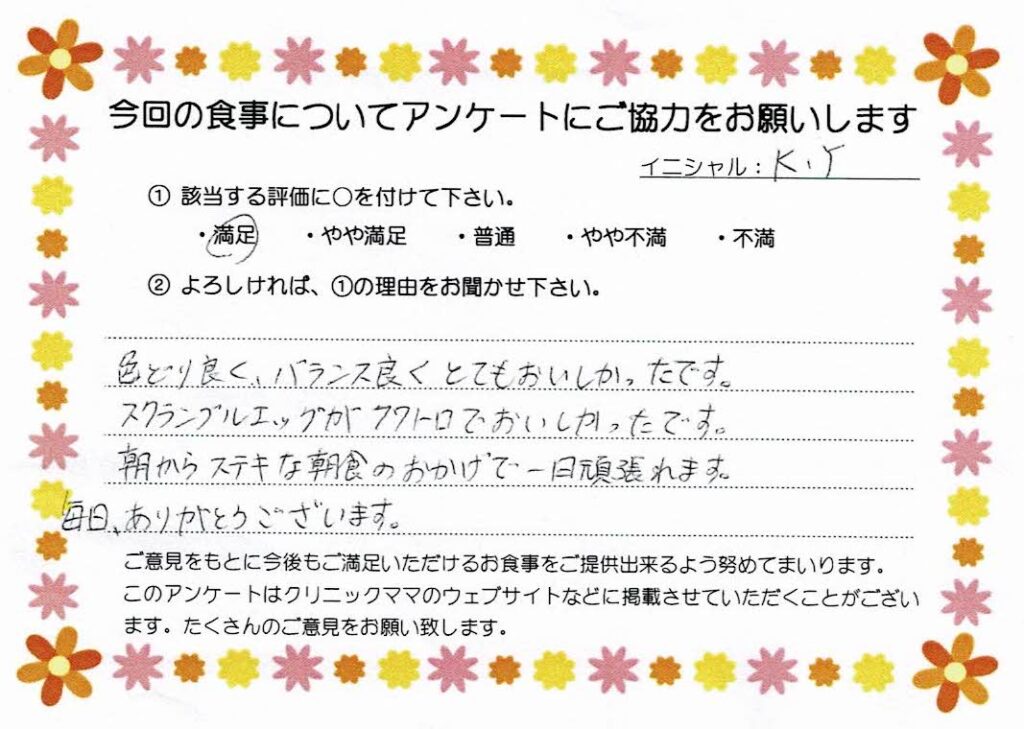 今回の食事についてアンケートにご協力をお願いします
イニシャル：K.Y
① 該当する評価に○を付けて下さい。
・満足 ・やや満足 ・普通 ・やや不満 ・不満
② よろしければ、①の理由をお聞かせ下さい。
色どり良く、バランス良くとてもおいしかったです。
スクランブルエッグがフワトロでおいしかったです。
朝からステキな朝食のおかげで一日頑張れます。
毎日、ありがとうございます。
ご意見をもとに今後もご満足いただけるお食事をご提供出来るよう努めてまいります。
このアンケートはクリニックママのウェブサイトなどに掲載させていただくことがござい
ます。たくさんのご意見をお願い致します。